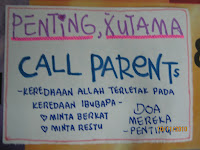 PENTING, XUTAMA
CALL PARENTS
-KEREDHAAN ALLAH TERLETAK PADA
KEREDAAN IBUBAPA-
♡ MINTA BERKAT
♡ MINTA RESTU
DOA
MEREKA
-PENTING-